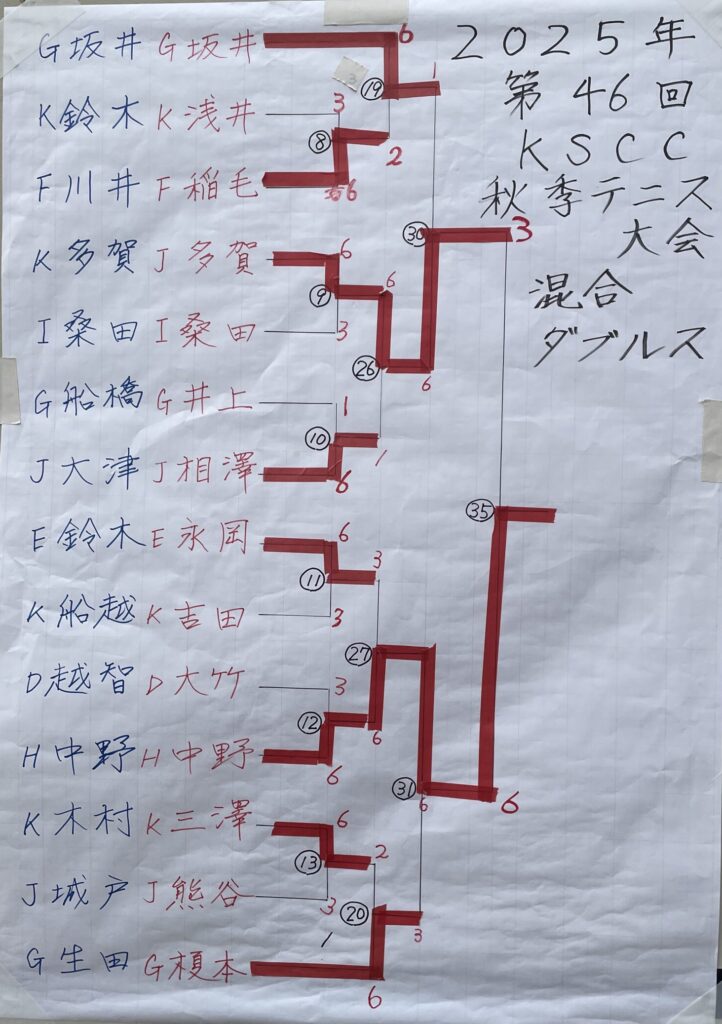 2025年
第46回
KSCC
秋季テニス
大会
混合
ダブルス
G坂井 G坂井 6
⑲ 1
K鈴木 K浅井 3
⑧ 2
F川井 F稲毛 6
㉚ 3
K多賀 J多賀 6
⑨ 6
I桑田 I桑田 3
㉖ 6
G船橋 G井上 1
⑩ 1
J大津 J相澤 6
㉟
E鈴木 E永岡 6
⑪ 3
K船越 K吉田 3
㉗
D越智 D大竹 3
⑫ 6
H中野 H中野 6
㉛ 6 6
K木村 K三澤 6
⑬ 2
J城戸 J熊谷 3
⑳ 3
G生田 G榎本 6